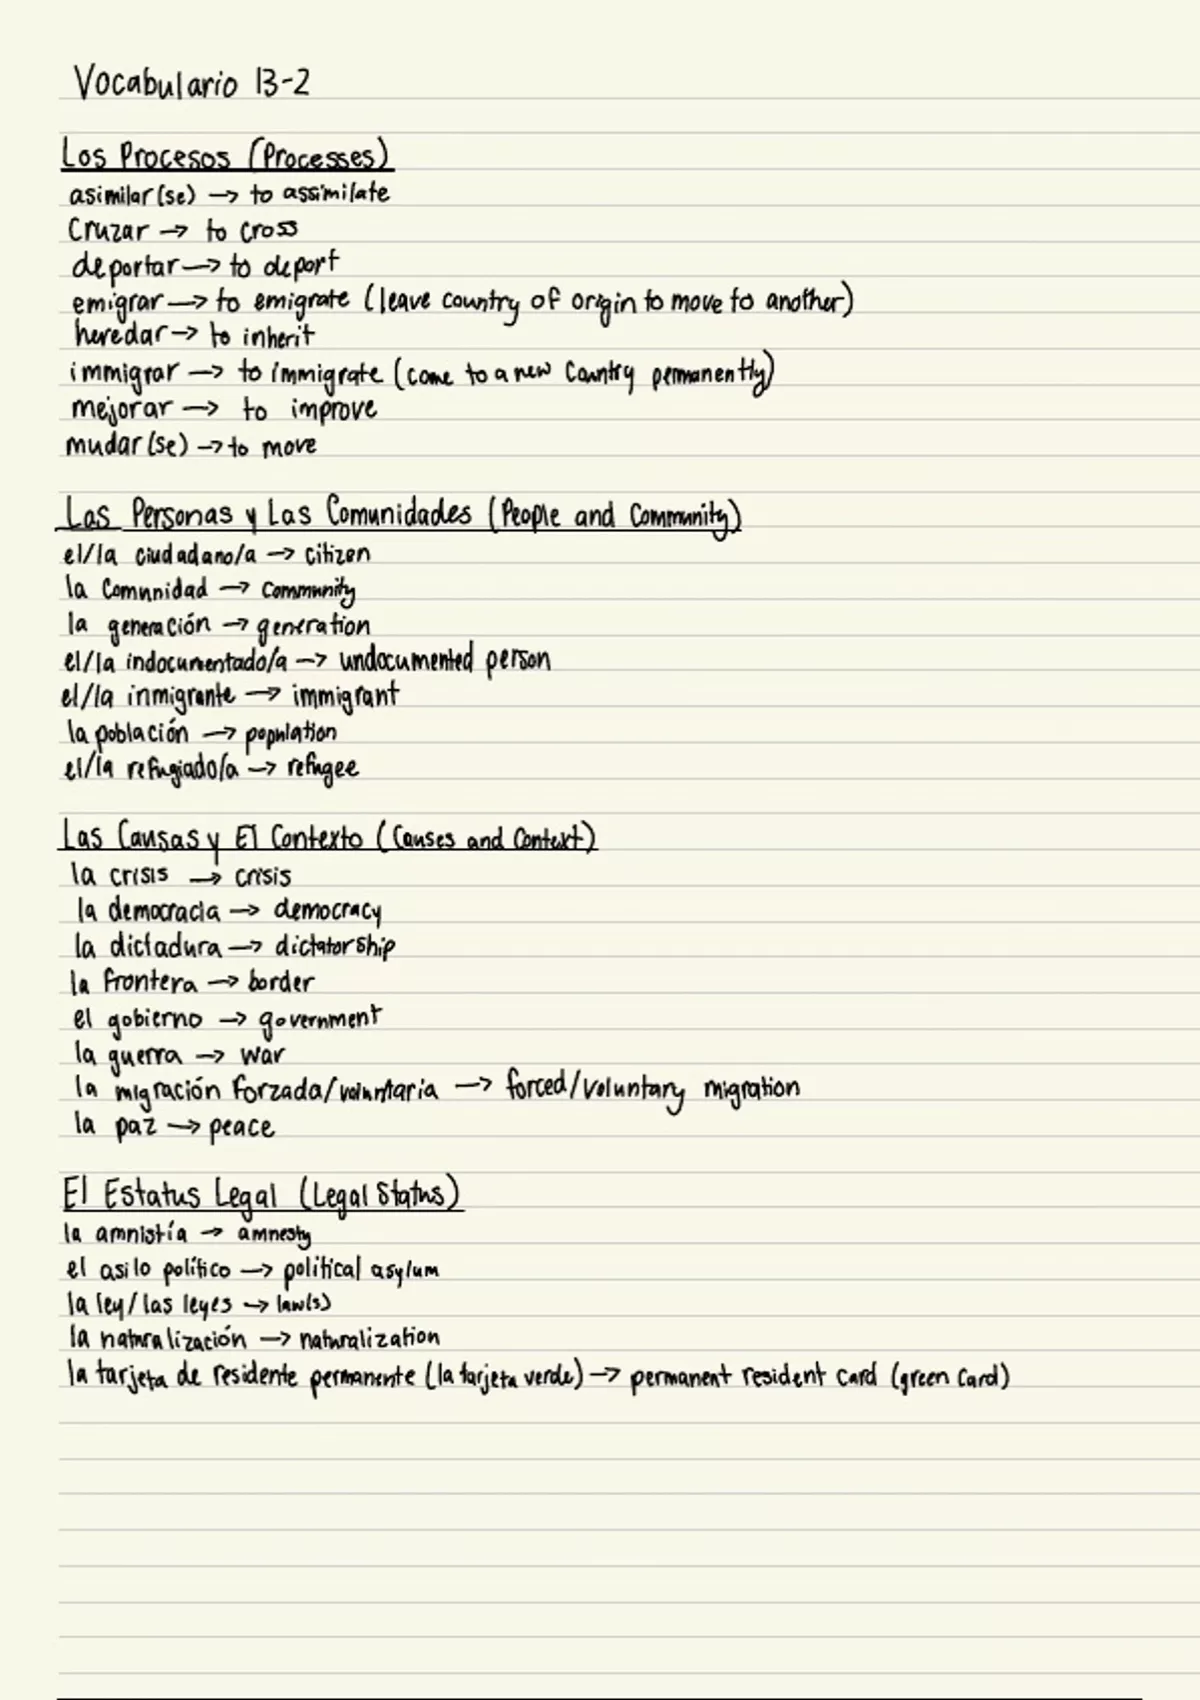 Vocabulario 13-2
Los Procesos (Processes)
asimilar(se) → to assimilate
Cruzar → to cross
deportar → to deport
emigrar → to emigrate (leave country of origin to move to another)
heredar → to inherit
immigrar → to immigrate (come to a new Country permanently)
mejorar → to improve
mudar(se) → to move
Las Personas y Las Comunidades (People and Community)
el/la ciudadano/a → citizen
la Comunidad → Community
la generación → generation
el/la indocumentado/a → undocumented person
el/la inmigrante → immigrant
la población → population
el/la refugiado/a → refugee
Las Causas y El Contexto (Causes and Context)
la crisis → crisis
la democracia → democracy
la dictadura → dictatorship
la frontera → border
el gobierno → government
la guerra → war
la migración forzada/voluntaria → forced/voluntary migration
la paz → peace
El Estatus Legal (Legal Status)
la amnistía → amnesty
el asilo político → political asylum
la ley/las leyes → law(s)
la naturalización → naturalization
la tarjeta de residente permanente (la tarjeta verde) → permanent resident card (green Card)